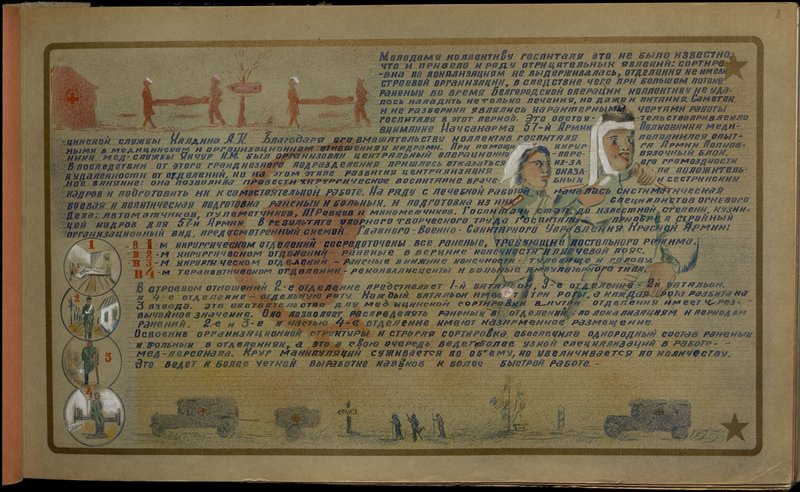 8
Молодому коллективу госпиталя это не было известно,
что и привело к ряду отрицательных явлений: сортиро-
-вка по локализациям не выдерживалась, отделения не имели
строевой организации, в следствие чего при большом потоке
раненых во время Белгородской операции коллективу не уда-
лось наладить не только лечения, но даже и питания. Самотек
и не развернин являлись характерными чертями работы
госпиталя в этот период. Это обстоя- тельство привлекло
внимание Начсанарма 57-й Армии Полковника меди-
цинской службы А.К. Благодаря его вмешательству коллектив госпиталя пополнился опыт-
ными в медицинском и организационном отношениях кадрами. При помощи хирург- а Армии Полков-
ника мед-службы Янчур Н.М. был организован центральный операционно пере- вязочный блок.
В последствии от этого грандиозного подразделения пришлось отказаться из-за его громоздкости
и удаленности от отделений, но на этом этапе развития централизация оказа- ла положитель-
ное влияние: она позволила провести хирургическое воспитание враче- бных и сестринских
кадров и подготовить их к самостоятельной работе. На ряду с лечебной работой началась систиматическая
боевая и политическая подготовка раненых и больных, и подготовка из них специалистов огневого
дела: автоматчиков, пулеметчиков, ПТРовцев и минометчиков. Госпиталь стал до известной степени, кузни-
цей кадров для 57-й Армии. В результате упорного творческого труда госпиталь приобрел стройный
организационный вид, предусмотренный схемой Главного-Военно-Санитарного Управления Красной Армии:
1 - В 1-м хирургическом отделении сосредоточены все раненые, требующие постельного режима.
- В 2-м хирургическом отделении - раненые в верхние конечности и плечевой пояс.
- В 3-м хирургическом отделении - раненые в нижние конечности - туловище и голову.
В 4-м терапевтическом отделении - реконвалисценты и больные амбулаторного типа.
2 В строевом отношений 2-е отделение представляет 1-й батальон, 3-е отделение - 2й батальон,
а 4-е отделение - отдельную роту. Каждый батальон имеет три роты, а каждая рота разбита на
3 взвода. Это обстоятельство для медицинской сортировки внутри отделения имеет чрез-
вычайное значение. Оно позволяет распределять раненых в отделении по локализациям и периодам
3 ранений. 2-е и 3-е и частью 4-е отделение имеют казарменное размещение.
Освоение организационной структуры и строгая сортировка обеспечили однородный состав раненых
и больных в отделениях, а это в свою очередь ведет к более узкой специализаций в работе-
мед-персонала. Круг манипуляций суживается по об'ему, но увеличивается по количеству.
4 Это ведет к более четкой выработке навыков и более быстрой работе.-